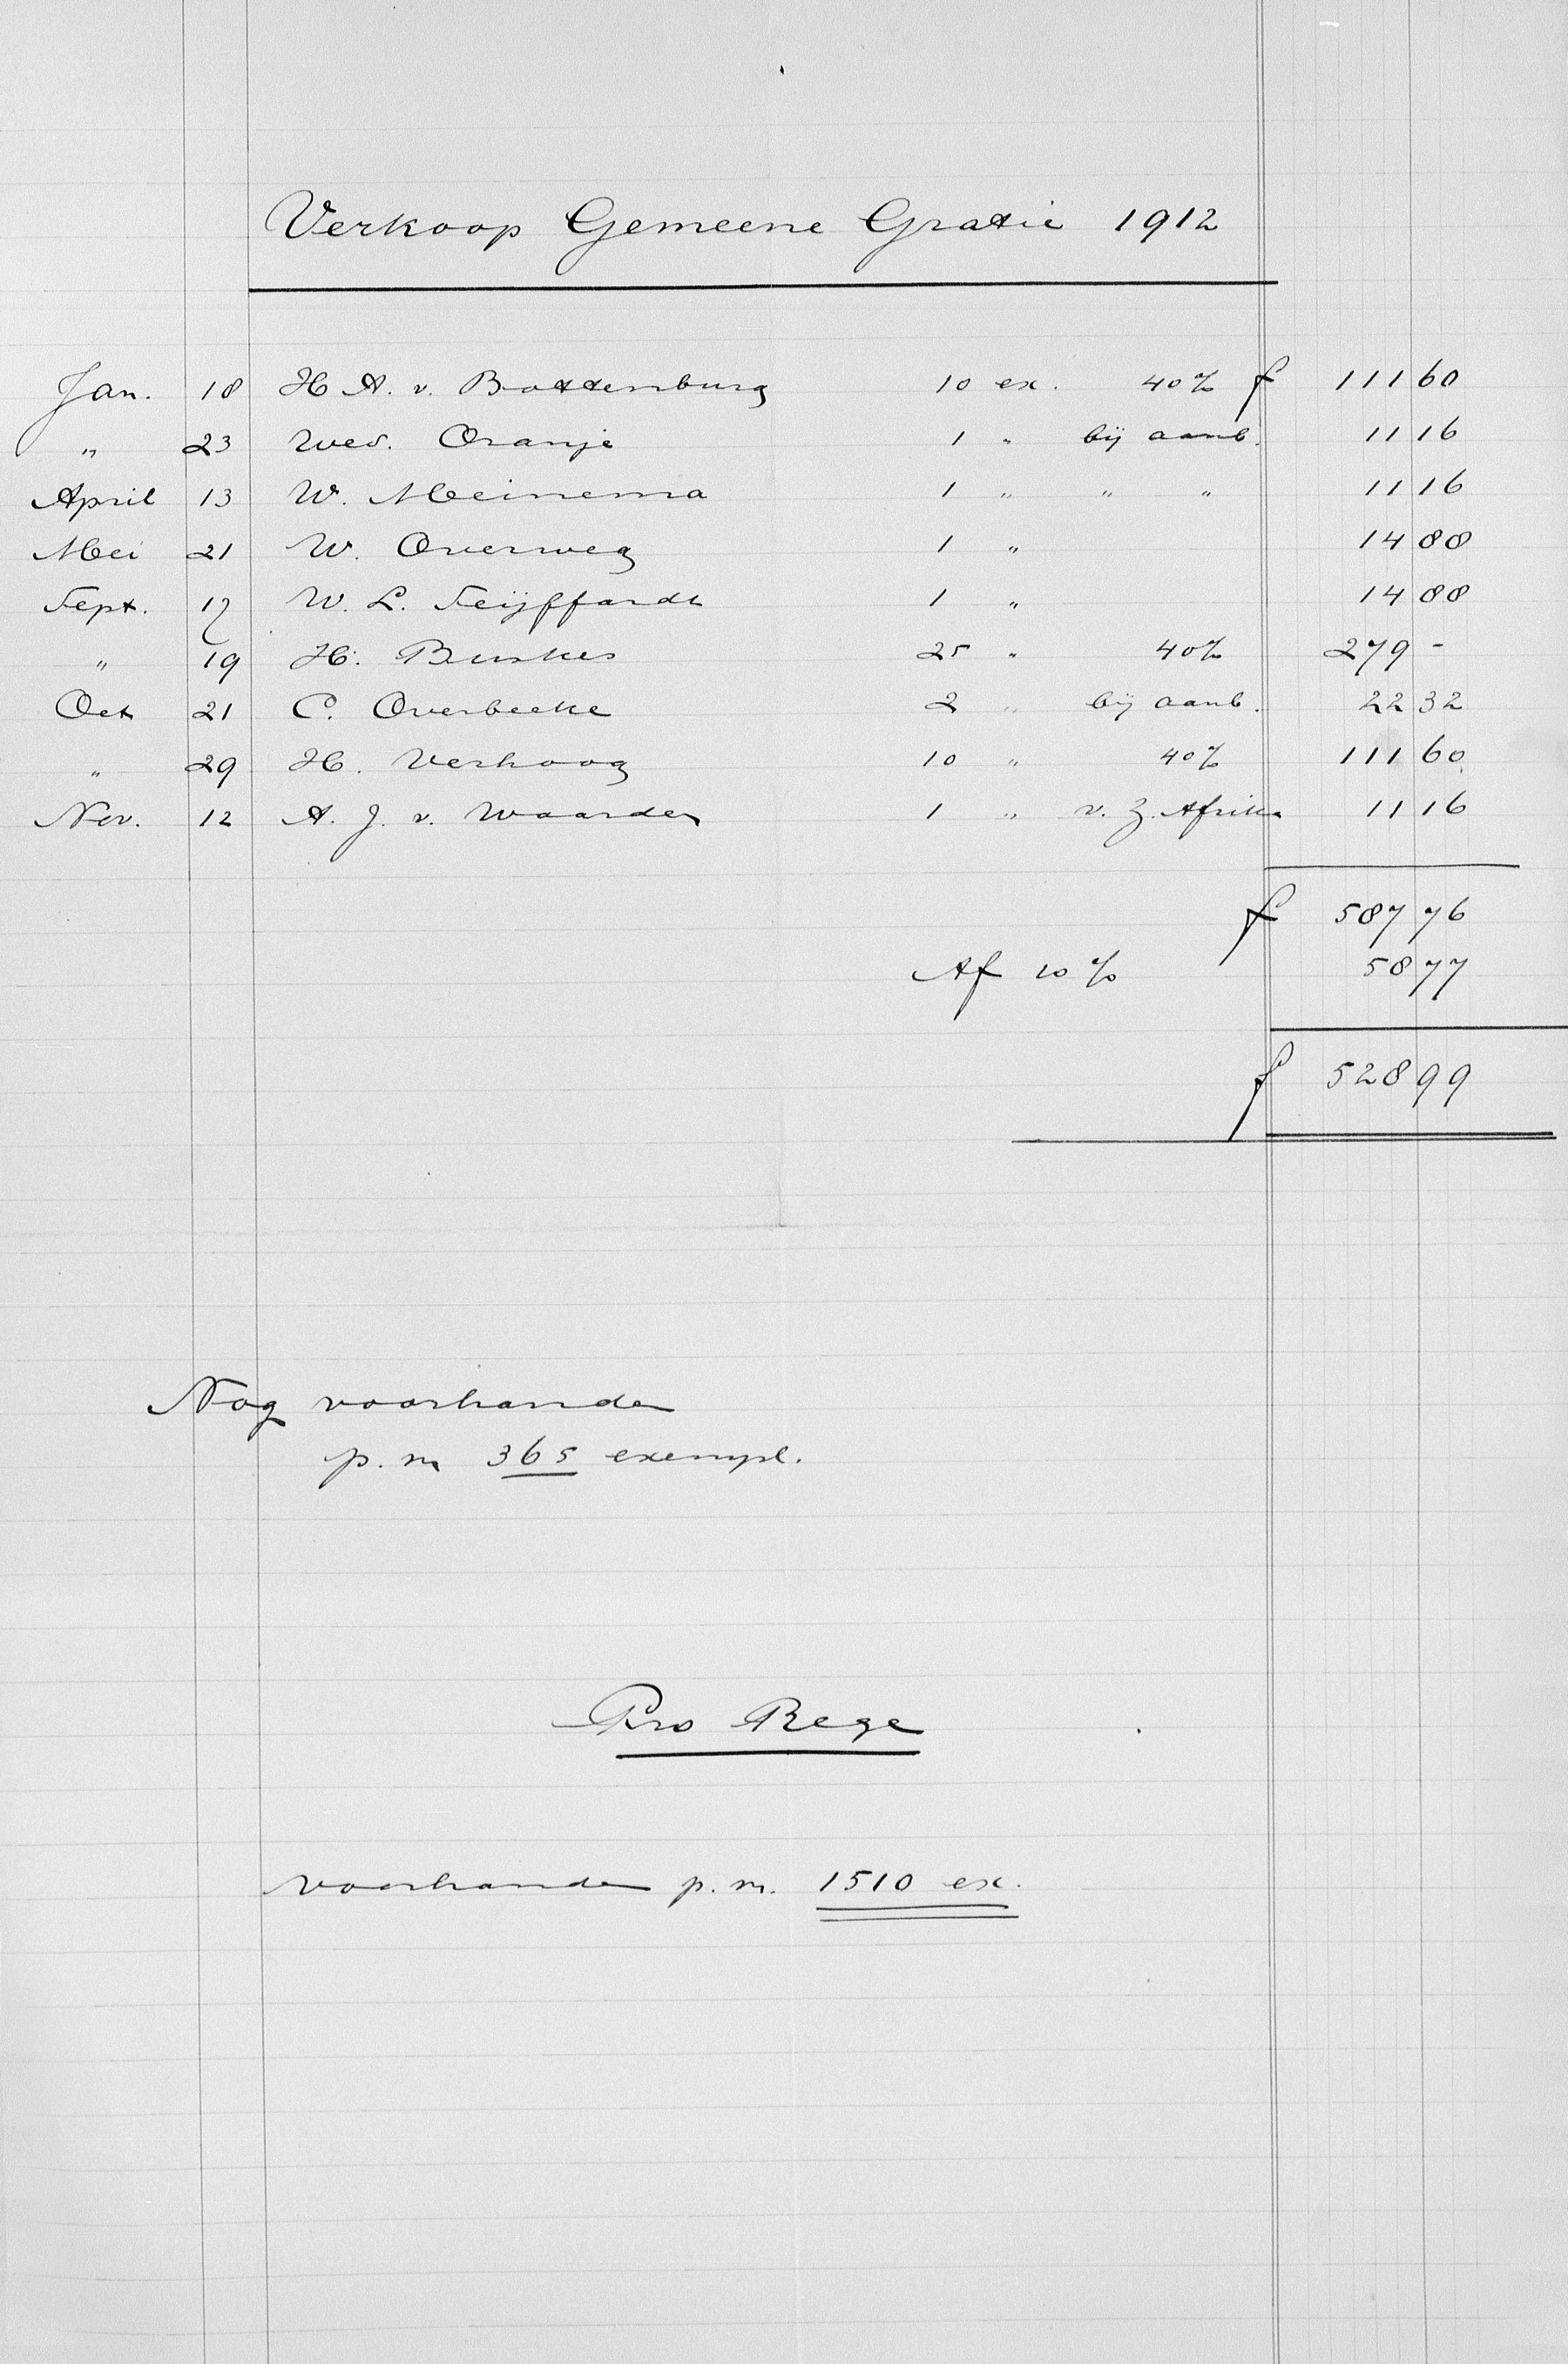 Verkoop Gemeene Gratie 1912
Jan. 18 H. A. v. Bottenburg 10 ex. 40% f 111 60
" 23 Wed. Oranje 1 " bij aanb. 11 16
April 13 W. Meinema 1 " " " 11 16
Mei 21 W. Overweg 1 " 14 88
Sept. 17 W. L. Seijffardt 1 " 14 88
" 19 H. Buskes 25 " 40% 279 -
Oct 21 C. Overbeeke 2 " bij aanb. 22 32
" 29 H. Verhoog 10 " 40% 111 60
Nov. 12 A. J. v. Waarden 1 " v. Z. Afrika 11 16
f 587 76
Af 10 % 58 77
f 528 99
Nog voorhanden
p. m 365 exempl.
Pro Rege
voorhanden p. m. 1510 ex.